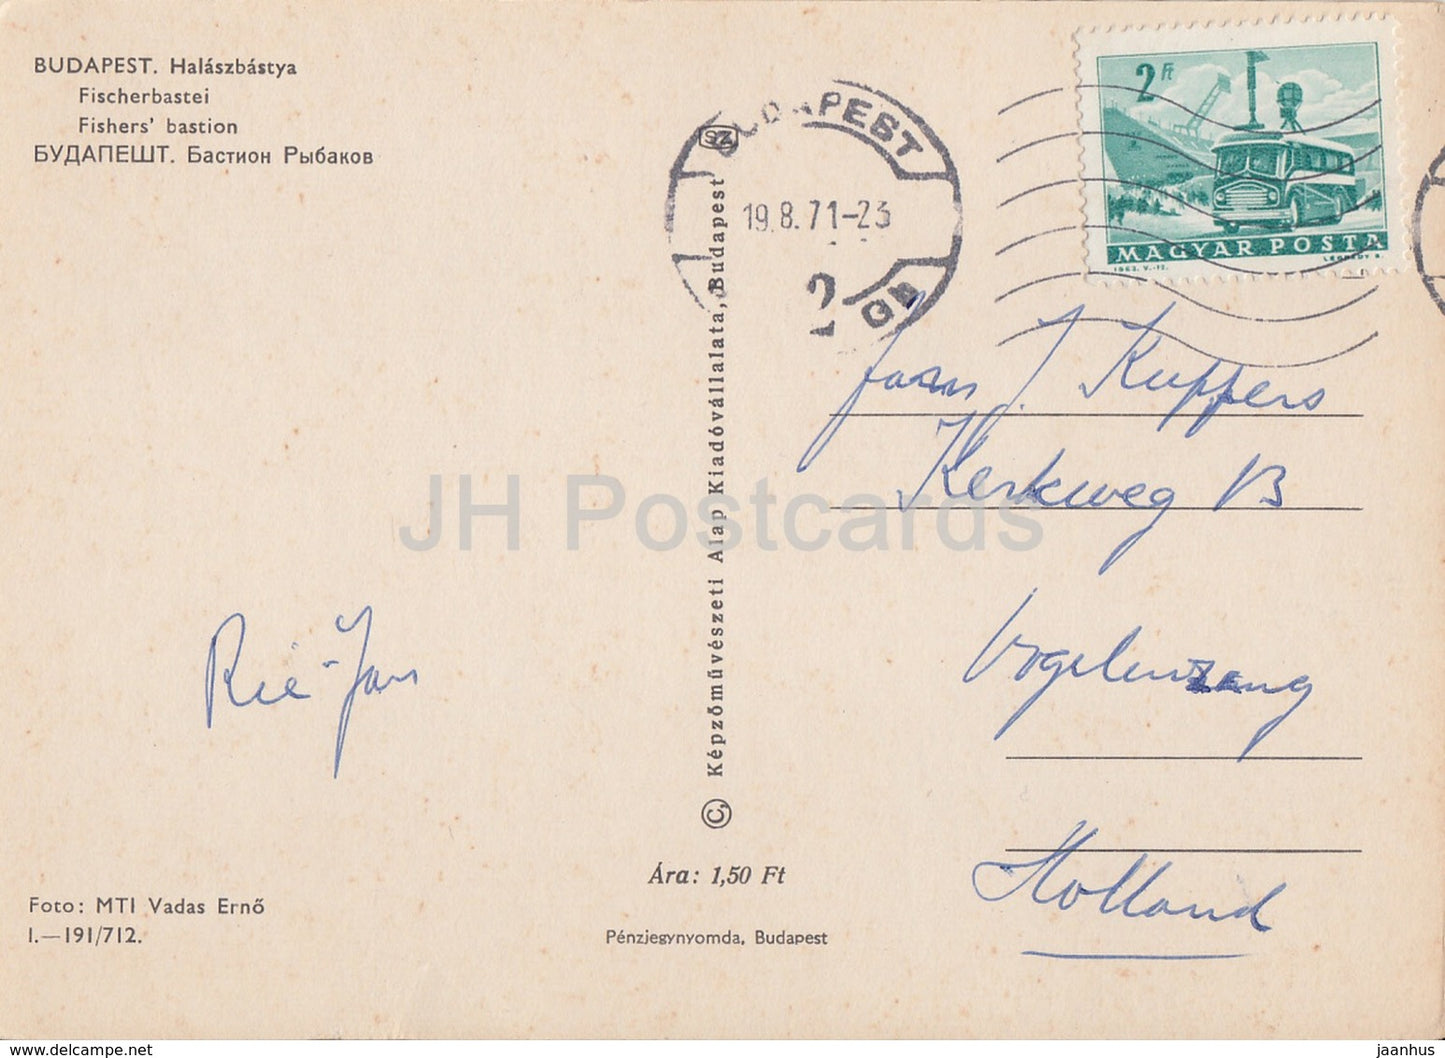 BUDAPEST. Halászbástya
Fischerbastei
Fishers' bastion
БУДАПЕШТ. Бастион Рыбаков
BUDAPEST
19.8.71-23
2
2 Ft
MAGYAR POSTA
1963. V.-12.
LÉGRÁDY S.
J. Kuppers
Kerkweg 13
Vogelenzang
Holland
Rie-Jan
© Képzőművészeti Alap Kiadóvállalata, Budapest
SZ
Ára: 1,50 Ft
Foto: MTI Vadas Ernő
I.—191/712.
Pénzjegynyomda, Budapest
JH Postcards
www.delcampe.net
jaanhus